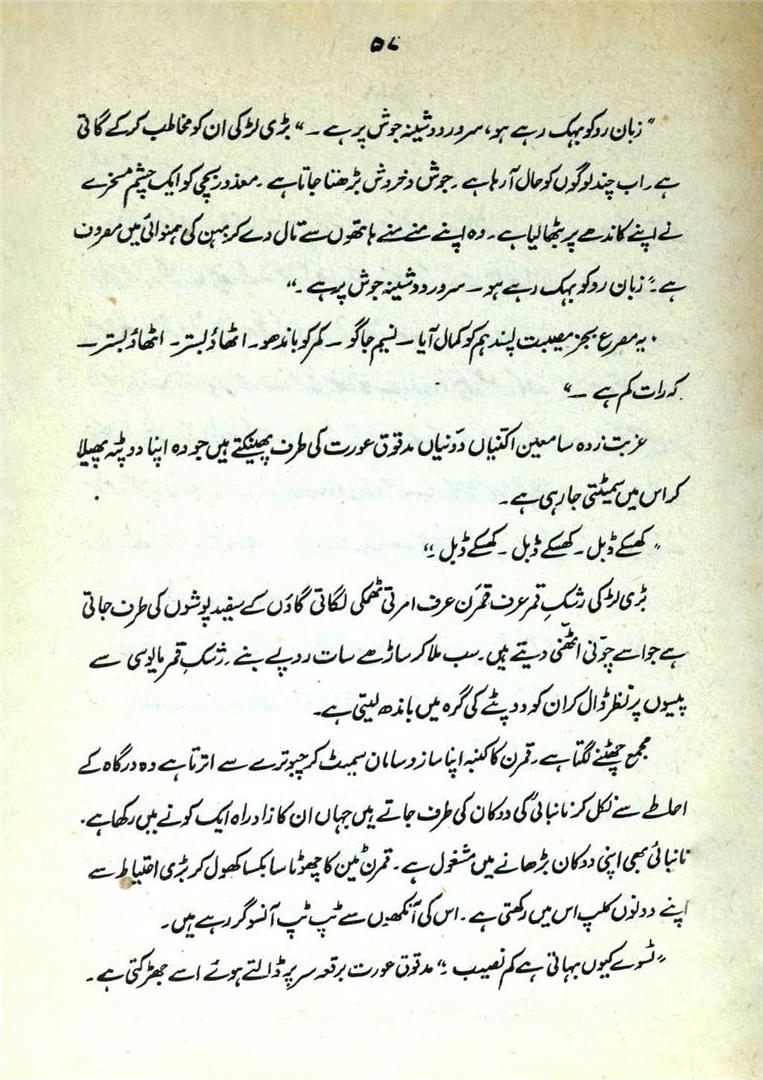 ۵۷
”زبان روکو بہک رہے ہو، سرور دوشینہ جوش پر ہے ۔“ بڑی لڑکی ان کو مخاطب کر کے گاتی
ہے ۔ اب چند لوگوں کو حال آ رہا ہے ۔ جوش و خروش بڑھتا جاتا ہے ۔ معذور بچی کو ایک چشم مسخرے
نے اپنے کاندھے پر بٹھا لیا ہے ۔ وہ اپنے منے منے ہاتھوں سے تال دے کر بہن کی ہمنوائی میں مصروف
ہے ۔ ”زبان روکو بہک رہے ہو ۔ سرور دوشینہ جوش پر ہے ۔“
”یہ مصرع بجز مصیبت پسند ہم کو کمال آیا ۔ نسیم جاگو ۔ کمر کو باندھو ۔ اٹھاؤ بستر ۔ اٹھاؤ بستر ۔
کہ رات کم ہے ۔“
غربت زدہ سامعین اکنیاں دونیاں مدقوق عورت کی طرف پھینکتے ہیں جو وہ اپنا دوپٹہ پھیلا
کر اس میں سمیٹتی جا رہی ہے ۔
”کھسکے ڈبل ۔ کھسکے ڈبل ۔ کھسکے ڈبل ۔“
بڑی لڑکی رشکِ قمر عرف قمرن عرف امرتی ٹھمکی لگاتی گاؤں کے سفید پوشوں کی طرف جاتی
ہے جو اسے چونی اٹھنی دیتے ہیں ۔ سب ملا کر ساڑھے سات روپے بنے ۔ رشکِ قمر مایوسی سے
پیسوں پر نظر ڈال کر ان کو دوپٹے کی گرہ میں باندھ لیتی ہے ۔
مجمع چھٹنے لگتا ہے ۔ قمرن کا کنبہ اپنا ساز و سامان سمیٹ کر چبوترے سے اترتا ہے وہ درگاہ کے
احاطے سے نکل کر نانبائی کی دوکان کی طرف جاتے ہیں جہاں ان کا زاد راہ ایک کونے میں رکھا ہے ۔
نانبائی بھی اپنی دوکان بڑھانے میں مشغول ہے ۔ قمرن ٹین کا چھوٹا سا بکسا کھول کر بڑی احتیاط سے
اپنے دونوں کلپ اس میں رکھتی ہے ۔ اس کی آنکھوں سے ٹپ ٹپ آنسو گر رہے ہیں ۔
”ٹسوے کیوں بہاتی ہے کم نصیب ؛“ مدقوق عورت برقعہ سر پر ڈالتے ہوئے اسے جھڑکتی ہے ۔